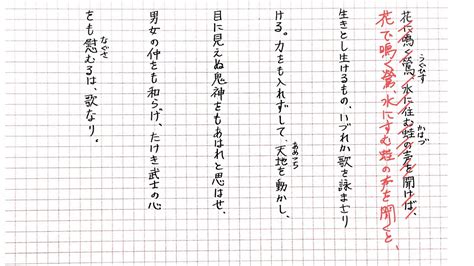 うぐひす かはづ
花に鳴く鶯、水に住む蛙の声を聞けば、
花で鳴く鶯、水にすむ蛙の声を聞くと、
生きとし生けるもの、いづれか歌を詠まざり
あめつち
ける。力をも入れずして、天地を動かし、
目に見えぬ鬼神をもあはれと思はせ、
男女の仲をも和らげ、たけき武士の心
なぐさ
をも慰むるは、歌なり。